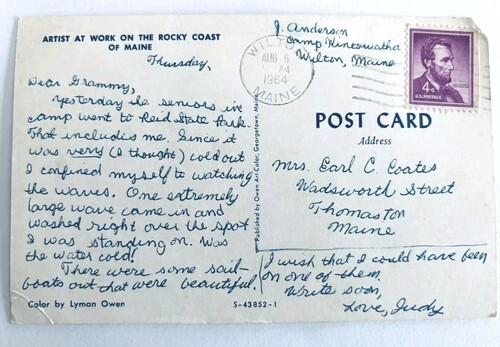 ARTIST AT WORK ON THE ROCKY COAST
OF MAINE
Thursday,
Dear Grammy,
Yesterday the seniors in
camp went to Reid State Park.
That includes me. Since it
was very (I thought) cold out
I confined myself to watching
the waves. One extremely
large wave came in and
washed right over the spot
I was standing on. Was
the water cold!
There were some sail-
boats out that were beautiful.
I wish that I could have been
on one of them.
Write soon,
Love, Judy
Color by Lyman Owen
S-43852-1
Published by Owen Art-Color, Georgetown, Maine
J. Anderson
Camp Kineowatha
Wilton, Maine
WILTON
AUG 6
AM
1964
MAINE
4¢
U.S. POSTAGE
POST CARD
Address
Mrs. Earl C. Coates
Wadsworth Street
Thomaston
Maine